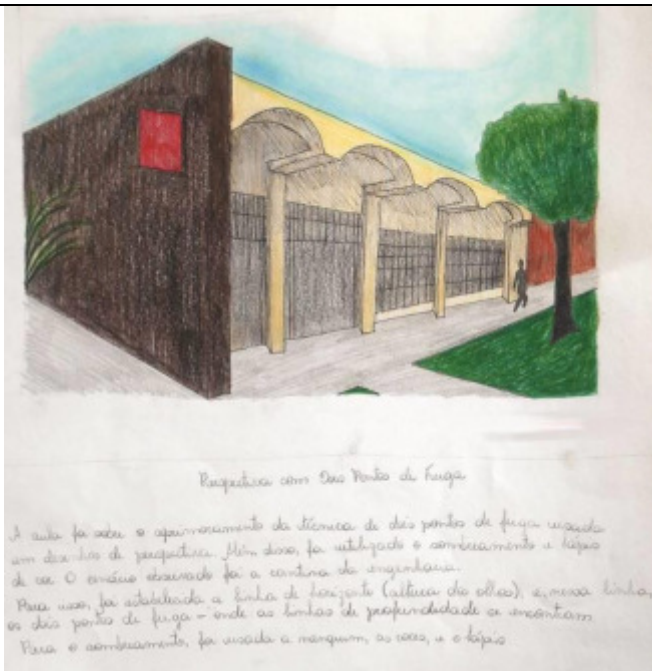 Perspectiva com Dois Pontos de Fuga
A aula foi sobre o aprimoramento da técnica de dois pontos de fuga usada
em desenhos de perspectiva. Além disso, foi utilizado o sombreamento e lápis
de cor. O cenário observado foi a cantina da engenharia.
Para isso, foi estabelecida a linha do horizonte (altura dos olhos), e, nessa linha,
os dois pontos de fuga - onde as linhas de profundidade se encontram.
Para o sombreamento, foi usada a nanquim, as cores, e o lápis.